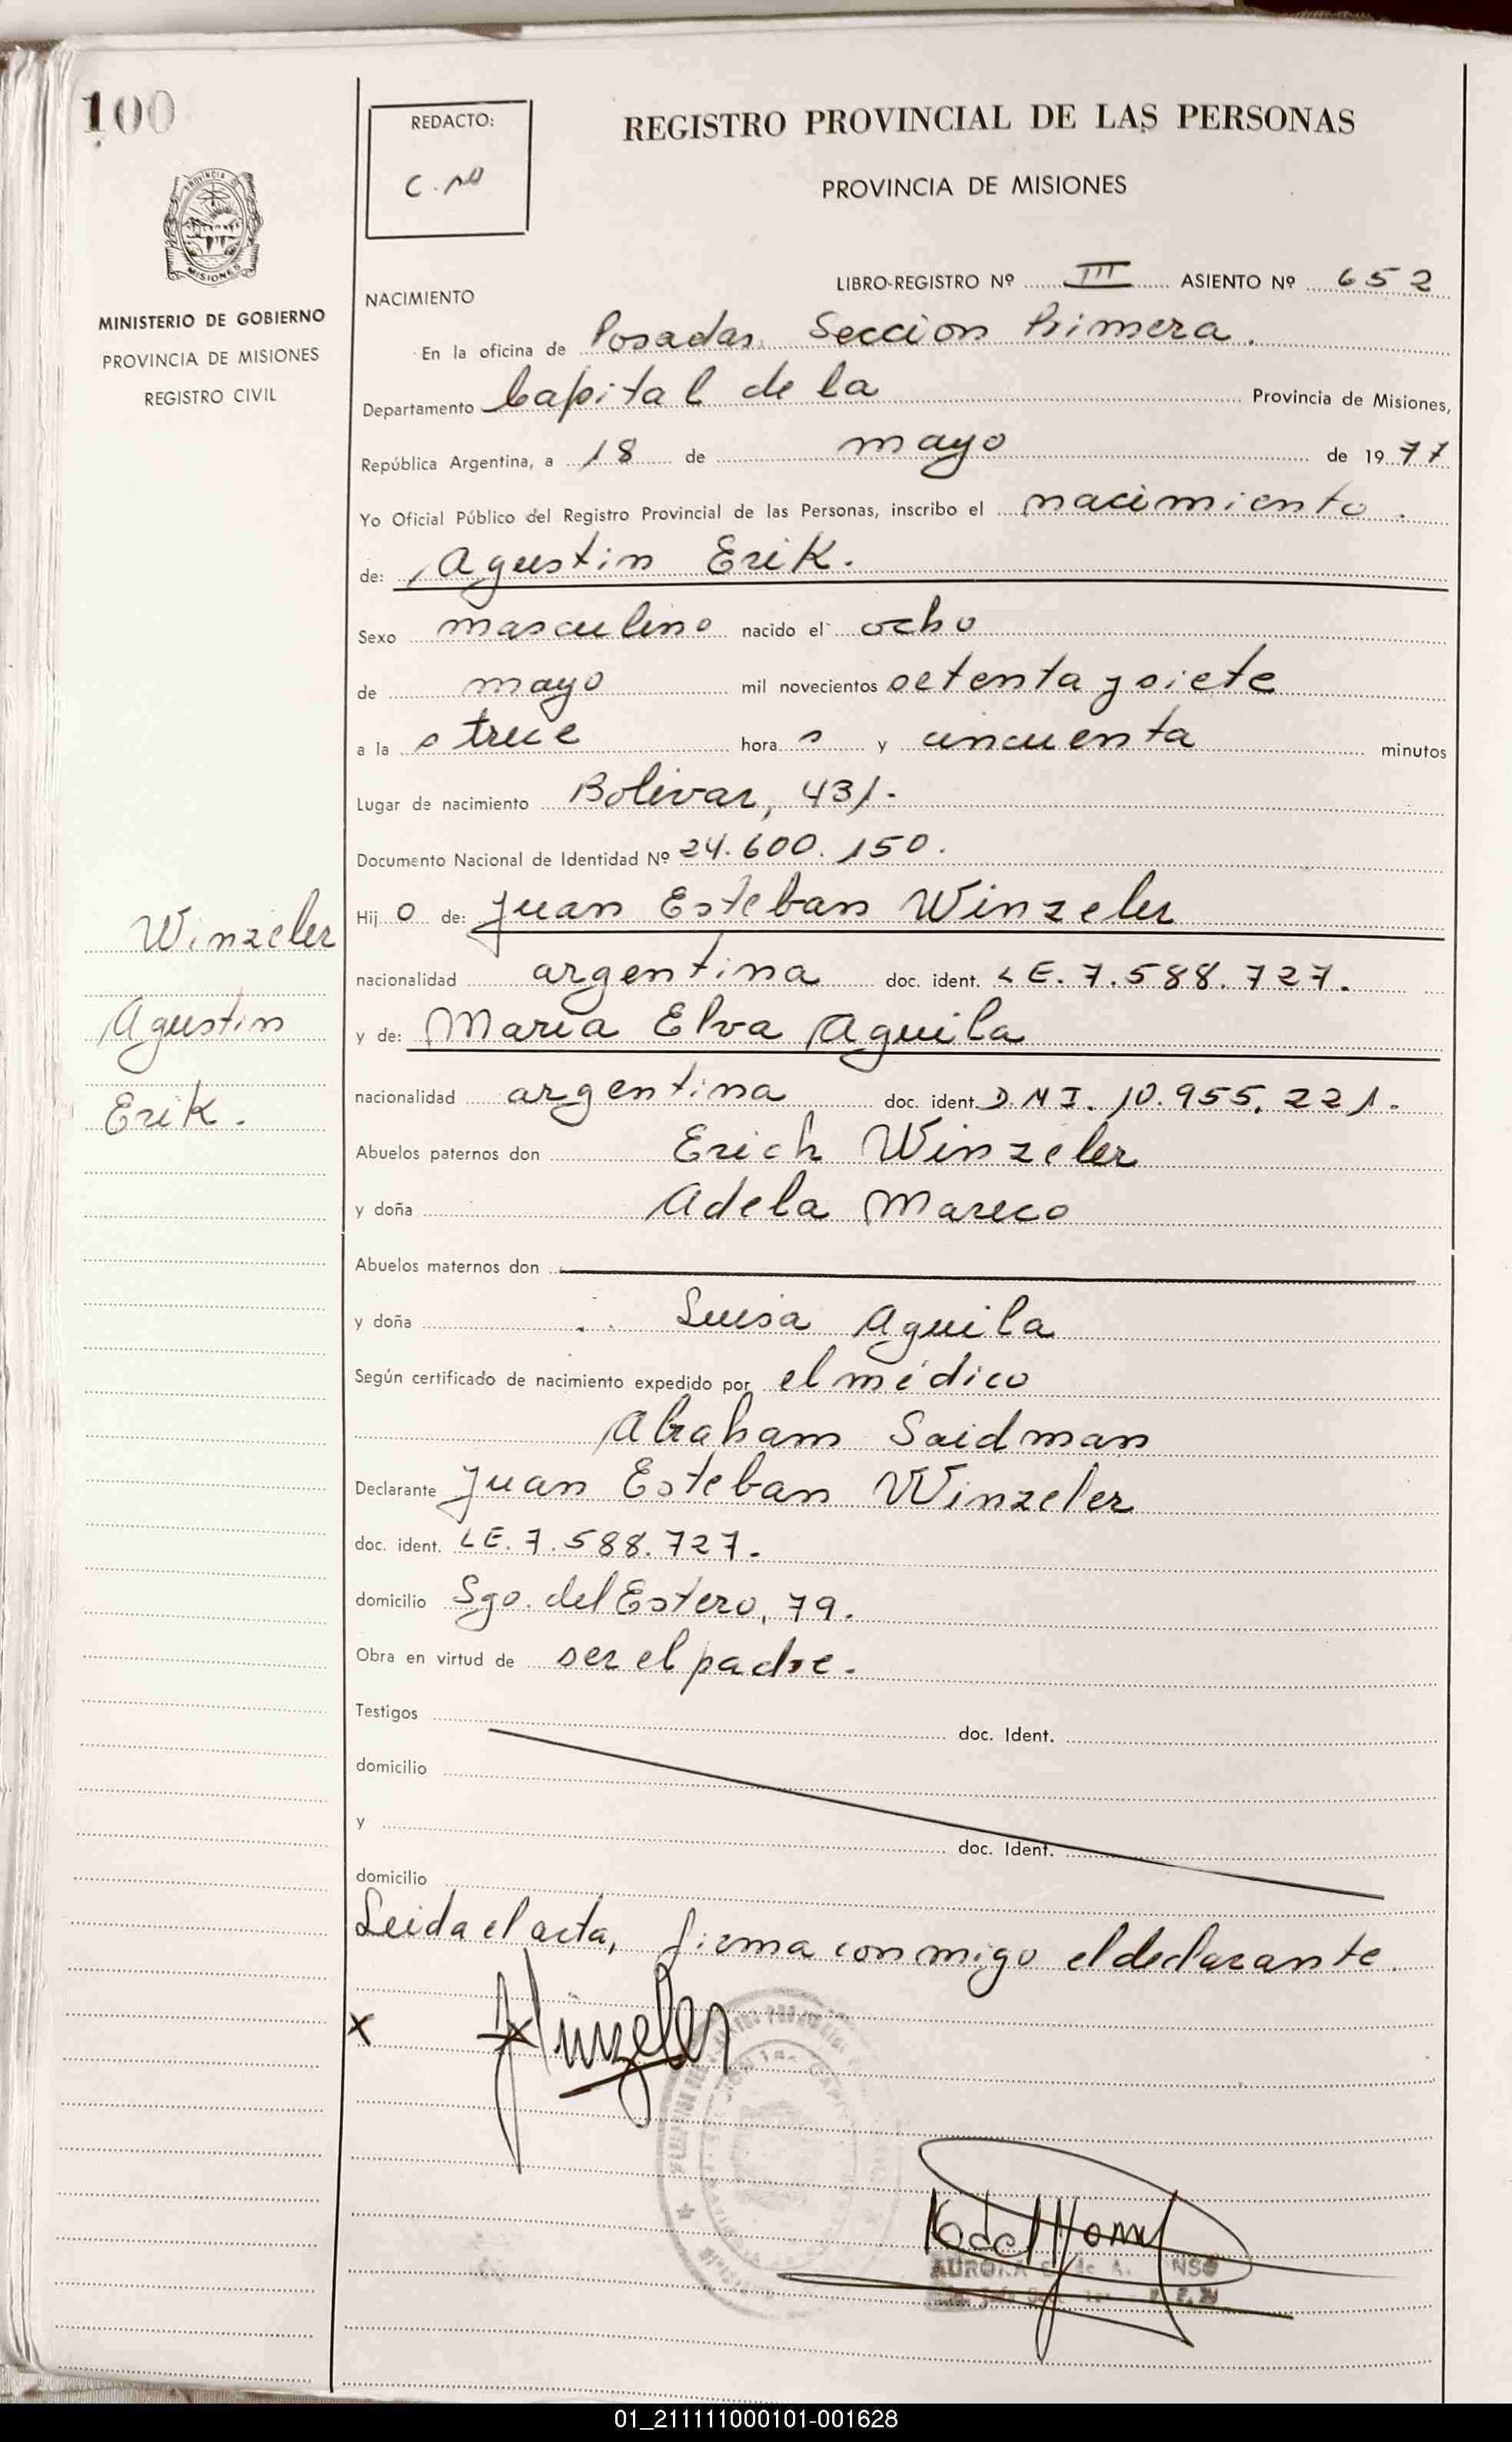 100
REDACTO:
REGISTRO PROVINCIAL DE LAS PERSONAS
PROVINCIA DE MISIONES
MISIONES
MINISTERIO DE GOBIERNO
PROVINCIA DE MISIONES
REGISTRO CIVIL
LIBRO-REGISTRO Nº III ASIENTO Nº 652
NACIMIENTO
En la oficina de Posadas Seccion Primera.
Departamento Capital de la Provincia de Misiones,
República Argentina, a 18 de mayo de 1977
Yo Oficial Público del Registro Provincial de las Personas, inscribo el nacimiento.
de: Agustin Erik.
Sexo masculino nacido el ocho
de mayo mil novecientos setenta y siete
a la s trece hora s y cincuenta minutos
Lugar de nacimiento Bolivar, 431.
Documento Nacional de Identidad Nº 24.600.150.
Hij o de: Juan Esteban Winzeler
nacionalidad argentina doc. ident. LE. 7.588.727.
y de: Maria Elva Aguila
nacionalidad argentina doc. ident. D.N.I. 10.955.221.
Abuelos paternos don Erich Winzeler
y doña Adela Mareco
Abuelos maternos don
y doña Luisa Aguila
Según certificado de nacimiento expedido por el médico
Abraham Saidman
Declarante Juan Esteban Winzeler
doc. ident. LE. 7.588.727.
domicilio Sgo. del Estero, 79.
Obra en virtud de ser el padre.
Testigos doc. Ident.
domicilio
y doc. Ident.
domicilio
Leida el acta, firma conmigo el declarante.
Winzeler
Agustin
Erik.
x Winzeler
AURORA
01_211111000101-001628